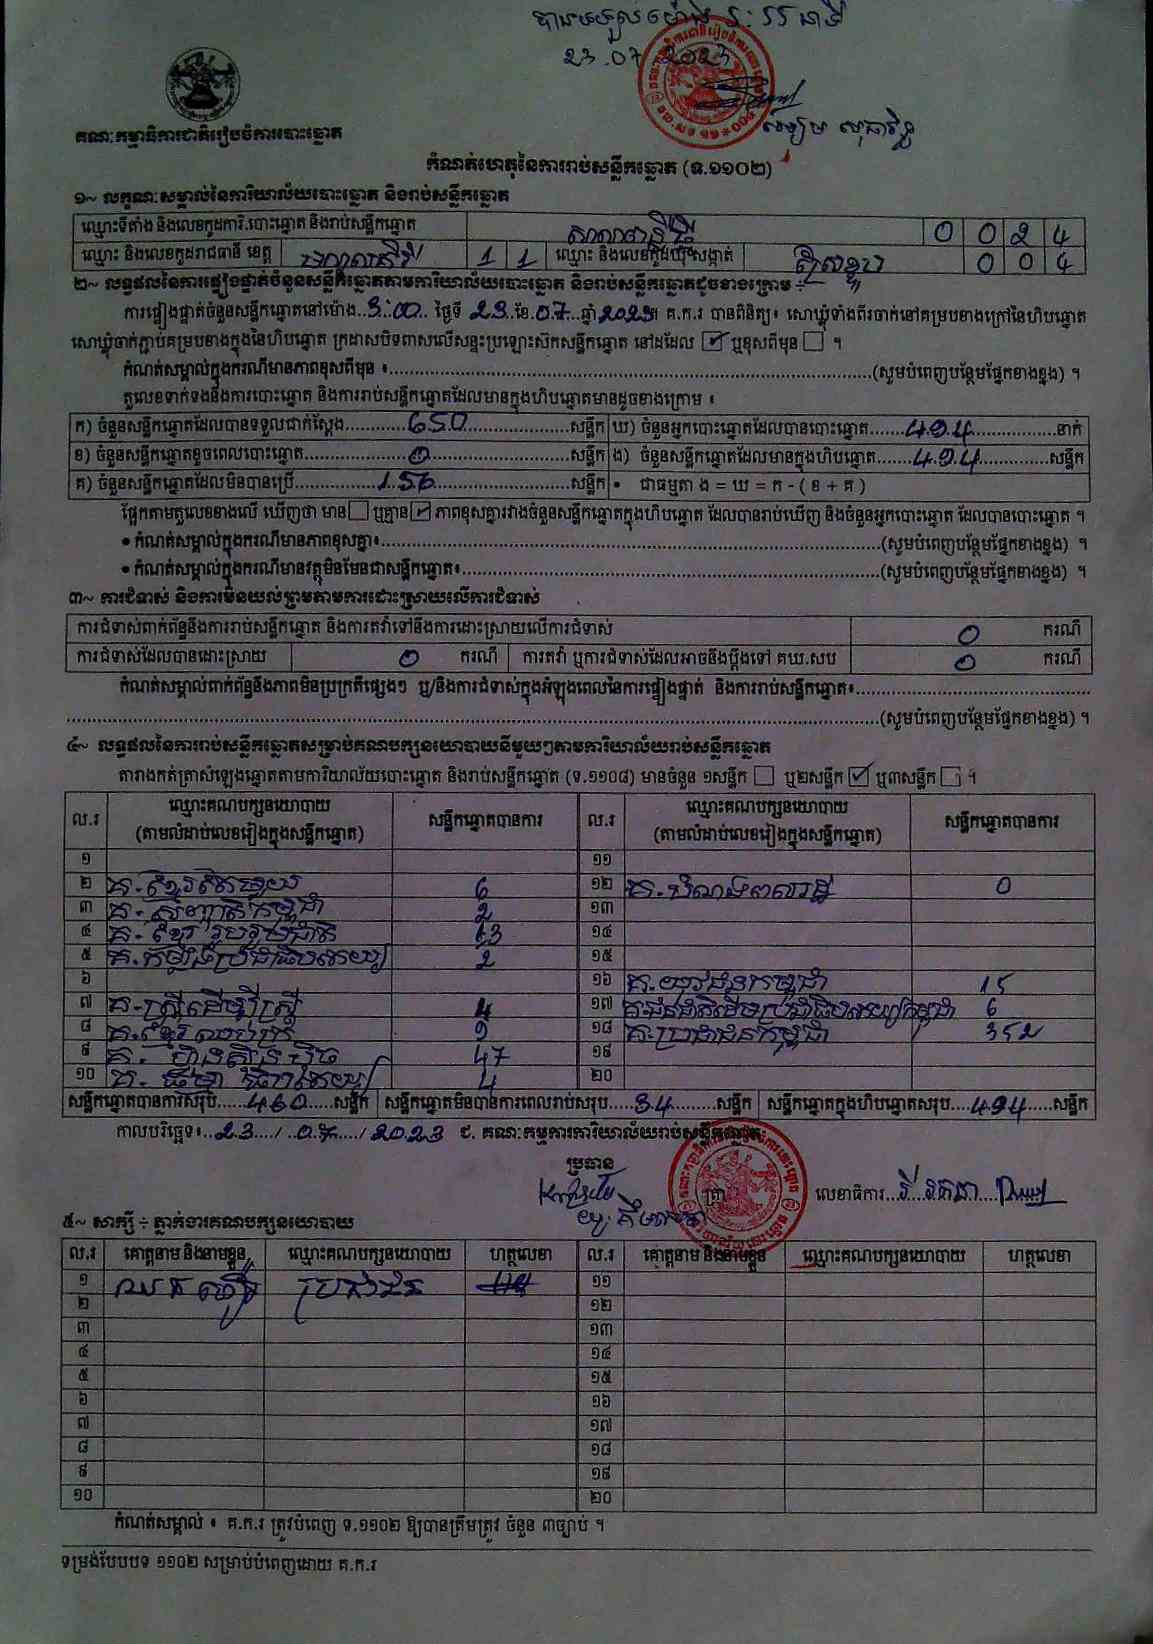 បានទទួលម៉ោង
23.07.2023
គណៈកម្មាធិការជាតិរៀបចំការបោះឆ្នោត
កំណត់ហេតុនៃការរាប់សន្លឹកឆ្នោត (ទ.១១០២)
១~ លក្ខណៈសម្គាល់នៃការិយាល័យបោះឆ្នោត និងរាប់សន្លឹកឆ្នោត
ឈ្មោះទីតាំង និងលេខកូដការិ.បោះឆ្នោត និងរាប់សន្លឹកឆ្នោត 0 0 2 4
ឈ្មោះ និងលេខកូដរាជធានី ខេត្ត មណ្ឌលគិរី 1 1 ឈ្មោះ និងលេខកូដឃុំ សង្កាត់ 0 0 4
២~ លទ្ធផលនៃការផ្ទៀងផ្ទាត់ចំនួនសន្លឹកឆ្នោតតាមការិយាល័យបោះឆ្នោត និងរាប់សន្លឹកឆ្នោតដូចខាងក្រោម ÷
ការផ្ទៀងផ្ទាត់ចំនួនសន្លឹកឆ្នោតនៅម៉ោង..3:00.. ថ្ងៃទី 23 ខែ.07..ឆ្នាំ 2023។ គ.ក.រ បានពិនិត្យ៖ សោឃ្មុំទាំងពីរចាក់នៅគម្របខាងក្រៅនៃហិបឆ្នោត
សោឃ្មុំចាក់ភ្ជាប់គម្របខាងក្នុងនៃហិបឆ្នោត ក្រដាសបិទពាសលើសន្ទះប្រឡោះស៊កសន្លឹកឆ្នោត នៅដដែល ☑ ឬខុសពីមុន ☐ ។
កំណត់សម្គាល់ក្នុងករណីមានភាពខុសពីមុន ៖..........(សូមបំពេញបន្ថែមផ្នែកខាងខ្នង) ។
តួលេខទាក់ទងនឹងការបោះឆ្នោត និងការរាប់សន្លឹកឆ្នោតដែលមានក្នុងហិបឆ្នោតមានដូចខាងក្រោម ៖
ក) ចំនួនសន្លឹកឆ្នោតដែលបានទទួលជាក់ស្តែង..........650..........សន្លឹក ឃ) ចំនួនអ្នកបោះឆ្នោតដែលបានបោះឆ្នោត.......494..........នាក់
ខ) ចំនួនសន្លឹកឆ្នោតខូចពេលបោះឆ្នោត..........0..........សន្លឹក ង) ចំនួនសន្លឹកឆ្នោតដែលមានក្នុងហិបឆ្នោត.......494..........សន្លឹក
គ) ចំនួនសន្លឹកឆ្នោតដែលមិនបានប្រើ..........156..........សន្លឹក • ជាធម្មតា ង = ឃ = ក - ( ខ + គ )
ផ្អែកតាមតួលេខខាងលើ ឃើញថា មាន ☐ ឬគ្មាន ☑ ភាពខុសគ្នារវាងចំនួនសន្លឹកឆ្នោតក្នុងហិបឆ្នោត ដែលបានរាប់ឃើញ និងចំនួនអ្នកបោះឆ្នោត ដែលបានបោះឆ្នោត ។
• កំណត់សម្គាល់ក្នុងករណីមានភាពខុសគ្នា៖..........(សូមបំពេញបន្ថែមផ្នែកខាងខ្នង) ។
• កំណត់សម្គាល់ក្នុងករណីមានវត្ថុមិនមែនជាសន្លឹកឆ្នោត៖..........(សូមបំពេញបន្ថែមផ្នែកខាងខ្នង) ។
៣~ ការជំទាស់ និងការមិនយល់ព្រមតាមការដោះស្រាយលើការជំទាស់
ការជំទាស់ពាក់ព័ន្ធនឹងការរាប់សន្លឹកឆ្នោត និងការតវ៉ាទៅនឹងការដោះស្រាយលើការជំទាស់ 0 ករណី
ការជំទាស់ដែលបានដោះស្រាយ 0 ករណី ការតវ៉ា ឬការជំទាស់ដែលអាចនឹងប្តឹងទៅ គឃ.សប 0 ករណី
កំណត់សម្គាល់ពាក់ព័ន្ធនឹងភាពមិនប្រក្រតីផ្សេងៗ ឬ/និងការជំទាស់ក្នុងអំឡុងពេលនៃការផ្ទៀងផ្ទាត់ និងការរាប់សន្លឹកឆ្នោត៖..........
..........(សូមបំពេញបន្ថែមផ្នែកខាងខ្នង) ។
៤~ លទ្ធផលនៃការរាប់សន្លឹកឆ្នោតសម្រាប់គណបក្សនយោបាយនីមួយៗតាមការិយាល័យរាប់សន្លឹកឆ្នោត
តារាងកត់ត្រាសំឡេងឆ្នោតតាមការិយាល័យបោះឆ្នោត និងរាប់សន្លឹកឆ្នោត (ទ.១១០៨) មានចំនួន ១សន្លឹក ☐ ឬ២សន្លឹក ☑ ឬ៣សន្លឹក ☐ ។
ល.រ ឈ្មោះគណបក្សនយោបាយ (តាមលំដាប់លេខរៀងក្នុងសន្លឹកឆ្នោត) សន្លឹកឆ្នោតបានការ ល.រ ឈ្មោះគណបក្សនយោបាយ (តាមលំដាប់លេខរៀងក្នុងសន្លឹកឆ្នោត) សន្លឹកឆ្នោតបានការ
១ ១១
២ គ.ខ្មែរតែមួយ 6 ១២ គ.បំណងពលរដ្ឋ 0
៣ គ.សញ្ជាតិកម្ពុជា 2 ១៣
៤ គ.ខ្មែររួបរួមជាតិ 13 ១៤
៥ គ.កម្លាំងប្រជាធិបតេយ្យ 2 ១៥
៦ ១៦ គ.យុវជនកម្ពុជា 15
៧ គ.ស្ត្រីដើម្បីស្ត្រី 4 ១៧ គ.ជនជាតិដើមប្រជាធិបតេយ្យកម្ពុជា 6
៨ គ.ខ្មែរឈប់ក្រ 9 ១៨ គ.ប្រជាជនកម្ពុជា 352
៩ គ.ហ៊្វុនស៊ិនប៉ិច 47 ១៩
១០ គ.ធម្មាធិបតេយ្យ 4 ២០
សន្លឹកឆ្នោតបានការសរុប.....460.....សន្លឹក សន្លឹកឆ្នោតមិនបានការពេលរាប់សរុប.....34.....សន្លឹក សន្លឹកឆ្នោតក្នុងហិបឆ្នោតសរុប....494.....សន្លឹក
កាលបរិច្ឆេទ៖..23.../..07..../ 2023 ជ. គណៈកម្មការការិយាល័យរាប់សន្លឹកឆ្នោត
ប្រធាន
ត្រា លេខាធិការ
៥~ សាក្សី ÷ ភ្នាក់ងារគណបក្សនយោបាយ
ល.រ គោត្តនាម និងនាមខ្លួន ឈ្មោះគណបក្សនយោបាយ ហត្ថលេខា ល.រ គោត្តនាម និងនាមខ្លួន ឈ្មោះគណបក្សនយោបាយ ហត្ថលេខា
១ ប្រជាជន ១១
២ ១២
៣ ១៣
៤ ១៤
៥ ១៥
៦ ១៦
៧ ១៧
៨ ១៨
៩ ១៩
១០ ២០
កំណត់សម្គាល់ ៖ គ.ក.រ ត្រូវបំពេញ ទ.១១០២ ឱ្យបានត្រឹមត្រូវ ចំនួន ៣ច្បាប់ ។
ទម្រង់បែបបទ ១១០២ សម្រាប់បំពេញដោយ គ.ក.រ